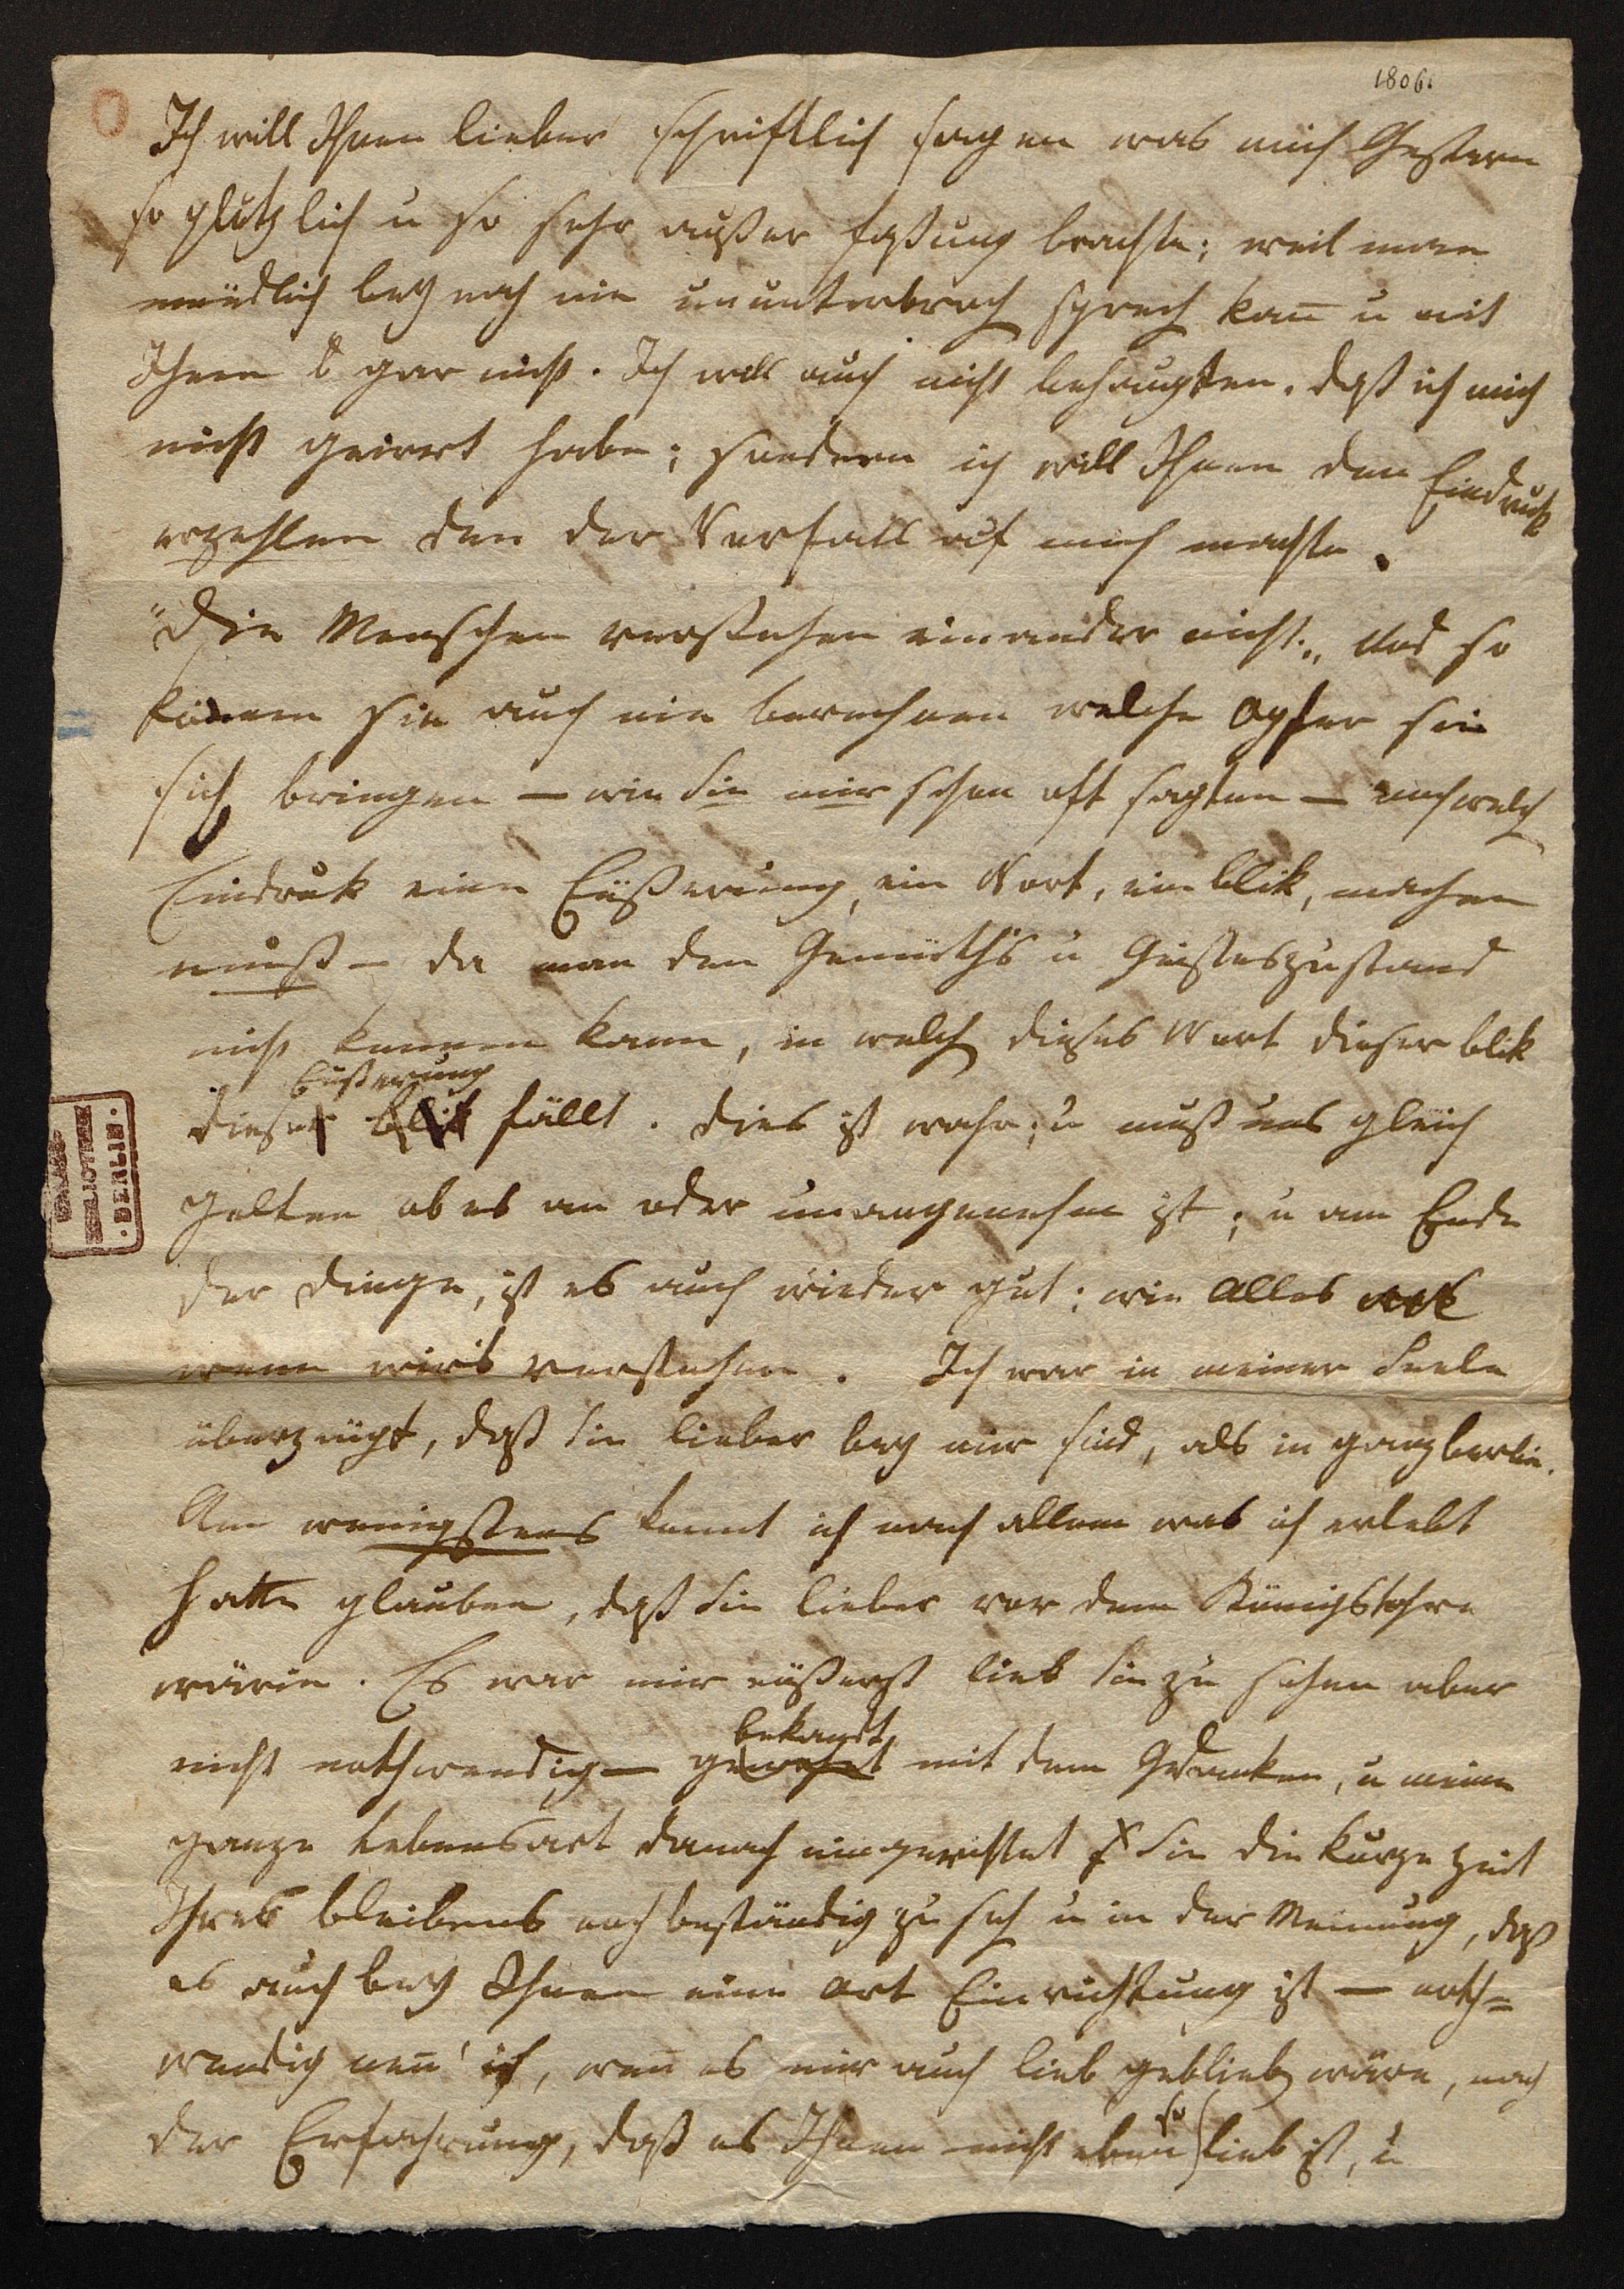 1806.
Ich will Ihnen lieber schriftlich sagen was mich Gestern
so plötzlich u so sehr außer faßung brachte; weil man
mündlich bey nah nie ununterbroch sprech kan̄ u mit
Ihnen gar nicht. Ich will auch nicht behaupten, daß ich mich
nicht geirrt habe; sondern ich will Ihnen den Eindruck
erzehlen den der Vorfall auf mich machte.
"Die Menschen verstehen einander nicht„ und so
können sie auch nie berechnen welche Opfer sie
sich bringen — wie Sie mir schon oft sagten — noch welch
Eindruk eine Eüßerung, ein Wort, ein blik, machen
muß — da man den Gemüth's u Geisteszustand
nicht kennen kann, in welch dieses Wort dieser blik
Eüßerung
diese blik fällt. dies ist wahr; u muß uns gleich
gelten ob es an oder unangenehm ist; u am Ende
der dinge, ist es auch wieder gut; wie Alles
wenn wir's verstehen. Ich war in meiner Seele
überzeügt, daß Sie lieber bey mir sind, als in ganz berlin.
Am wenigstens konnt ich nach allem was ich erlebt
hatte glauben, daß Sie lieber vor dem Königsthore
wären. Es war mir eüßerst lieb Sie zu sehen aber
bekandt
nicht nothwendig — gewohnt mit dem Gedanken, u meine
ganze Lebensart danach eingerichtet Sie die kurze Zeit
Ihres bleibens noch beständig zu seh u in der Meinung, daß
es auch bey Ihnen eine Art Einrichtung ist — noth=
wendig nen̄' ich, wen̄ es mir auch lieb geblieb wäre, nach
so
der Erfahrung, daß es Ihnen nicht eben lieb ist, u
BERLIN.